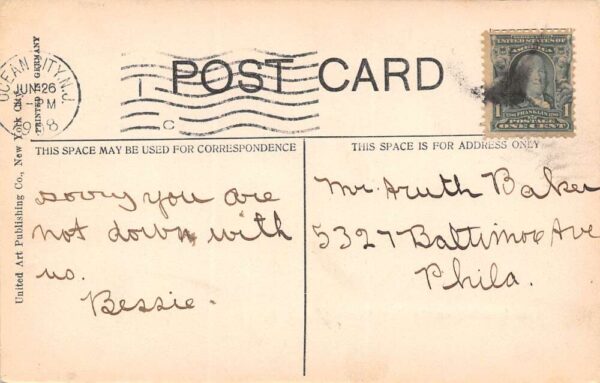 OCEAN CITY, N.J.
JUN 26
M
8
POST CARD
UNITED STATES OF
AMERICA
FRANKLIN
POSTAGE
ONE CENT
THIS SPACE MAY BE USED FOR CORRESPONDENCE
THIS SPACE IS FOR ADDRESS ONLY
United Art Publishing Co., New York City
PRINTED IN GERMANY
sorry you are
not down with
us.
Bessie.
Mr. Baker
5327 Baltimore Ave
Phila.